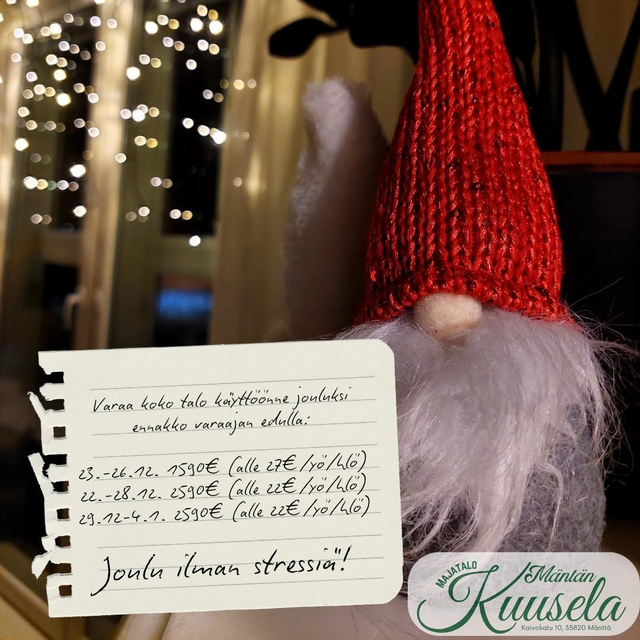 Varaa koko talo käyttöönne jouluksi
ennakko varaajan edulla:
23.-26.12. 1590€ (alle 27€/yö/hlö)
22.-28.12. 2590€ (alle 22€/yö/hlö)
29.12-4.1. 2590€ (alle 22€/yö/hlö)
Joulu ilman stressiä!
MAJATALO
Mäntän
Kuusela
Kaivokatu 10, 35820 Mänttä